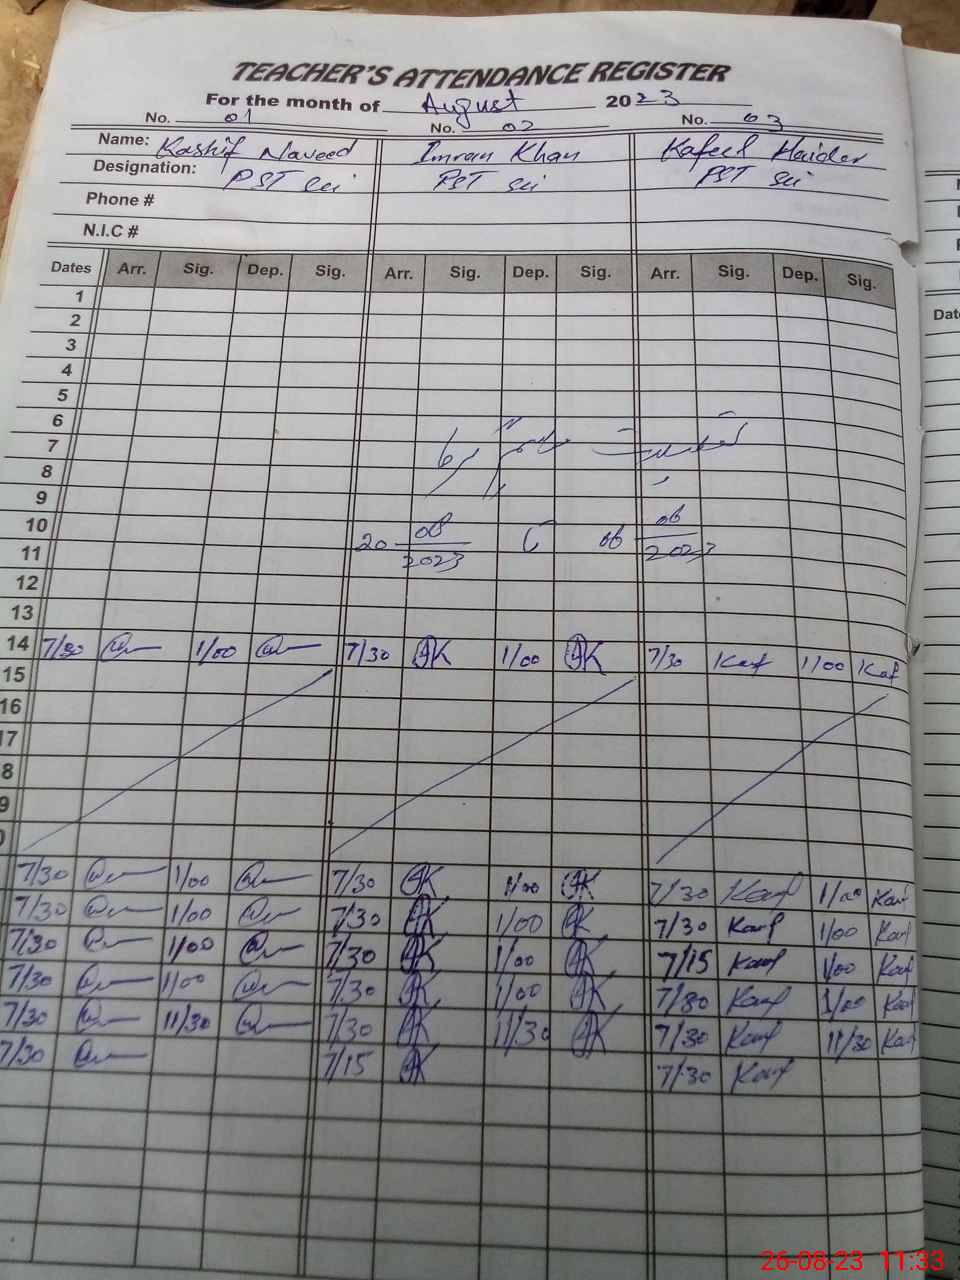 TEACHER'S ATTENDANCE REGISTER
For the month of August 2023
No. 01 No. 02 No. 03
Name: Kashif Naveed Imran Khan Kafeel Haider
Designation: PST PST PST
Phone #
N.I.C #
Dates Arr. Sig. Dep. Sig. Arr. Sig. Dep. Sig. Arr. Sig. Dep. Sig.
1
2
3
4
5
6
7
8
9
10
20 08/2023 06 06/2023
11
12
13
14 7/30 1/00 7/30 AK 1/00 AK 7/30 Kaf 1/00 Kaf
15
16
17
8
9
7/30 1/00 7/30 AK 1/00 AK 7/30 Kaif 1/00 Kaif
7/30 1/00 7/30 AK 1/00 AK 7/30 Kaif 1/00 Kaif
7/30 1/00 7/30 AK 1/00 AK 7/15 Kaif 1/00 Kaif
7/30 1/00 7/30 AK 1/00 AK 7/30 Kaif 1/00 Kaif
7/30 11/30 7/30 AK 11/30 AK 7/30 Kaif 11/30 Kaif
7/30 7/15 AK 7/30 Kaif
Date
26-08-23 11:33